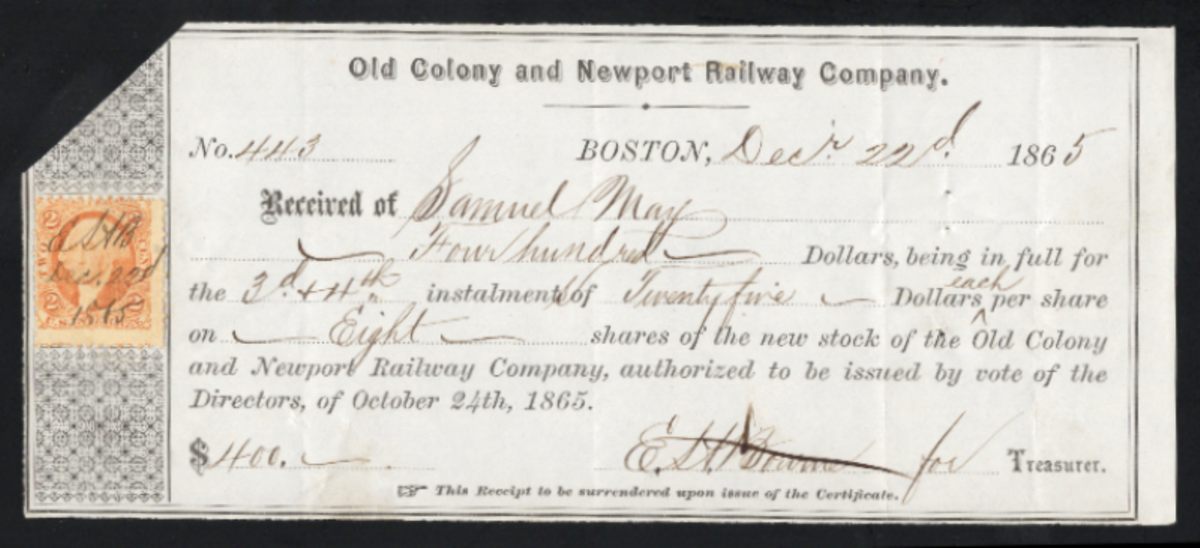 Old Colony and Newport Railway Company.
No. 443 BOSTON, Decr. 22d. 1865
Received of Samuel May
Four hundred Dollars, being in full for
the 3d. & 4th instalments of Twenty five Dollars each per share
on Eight shares of the new stock of the Old Colony
and Newport Railway Company, authorized to be issued by vote of the
Directors, of October 24th, 1865.
$400. E. S. H. Bourne for Treasurer.
This Receipt to be surrendered upon issue of the Certificate.
2 2
TWO CENTS
Dec. 22d
1865
2 2